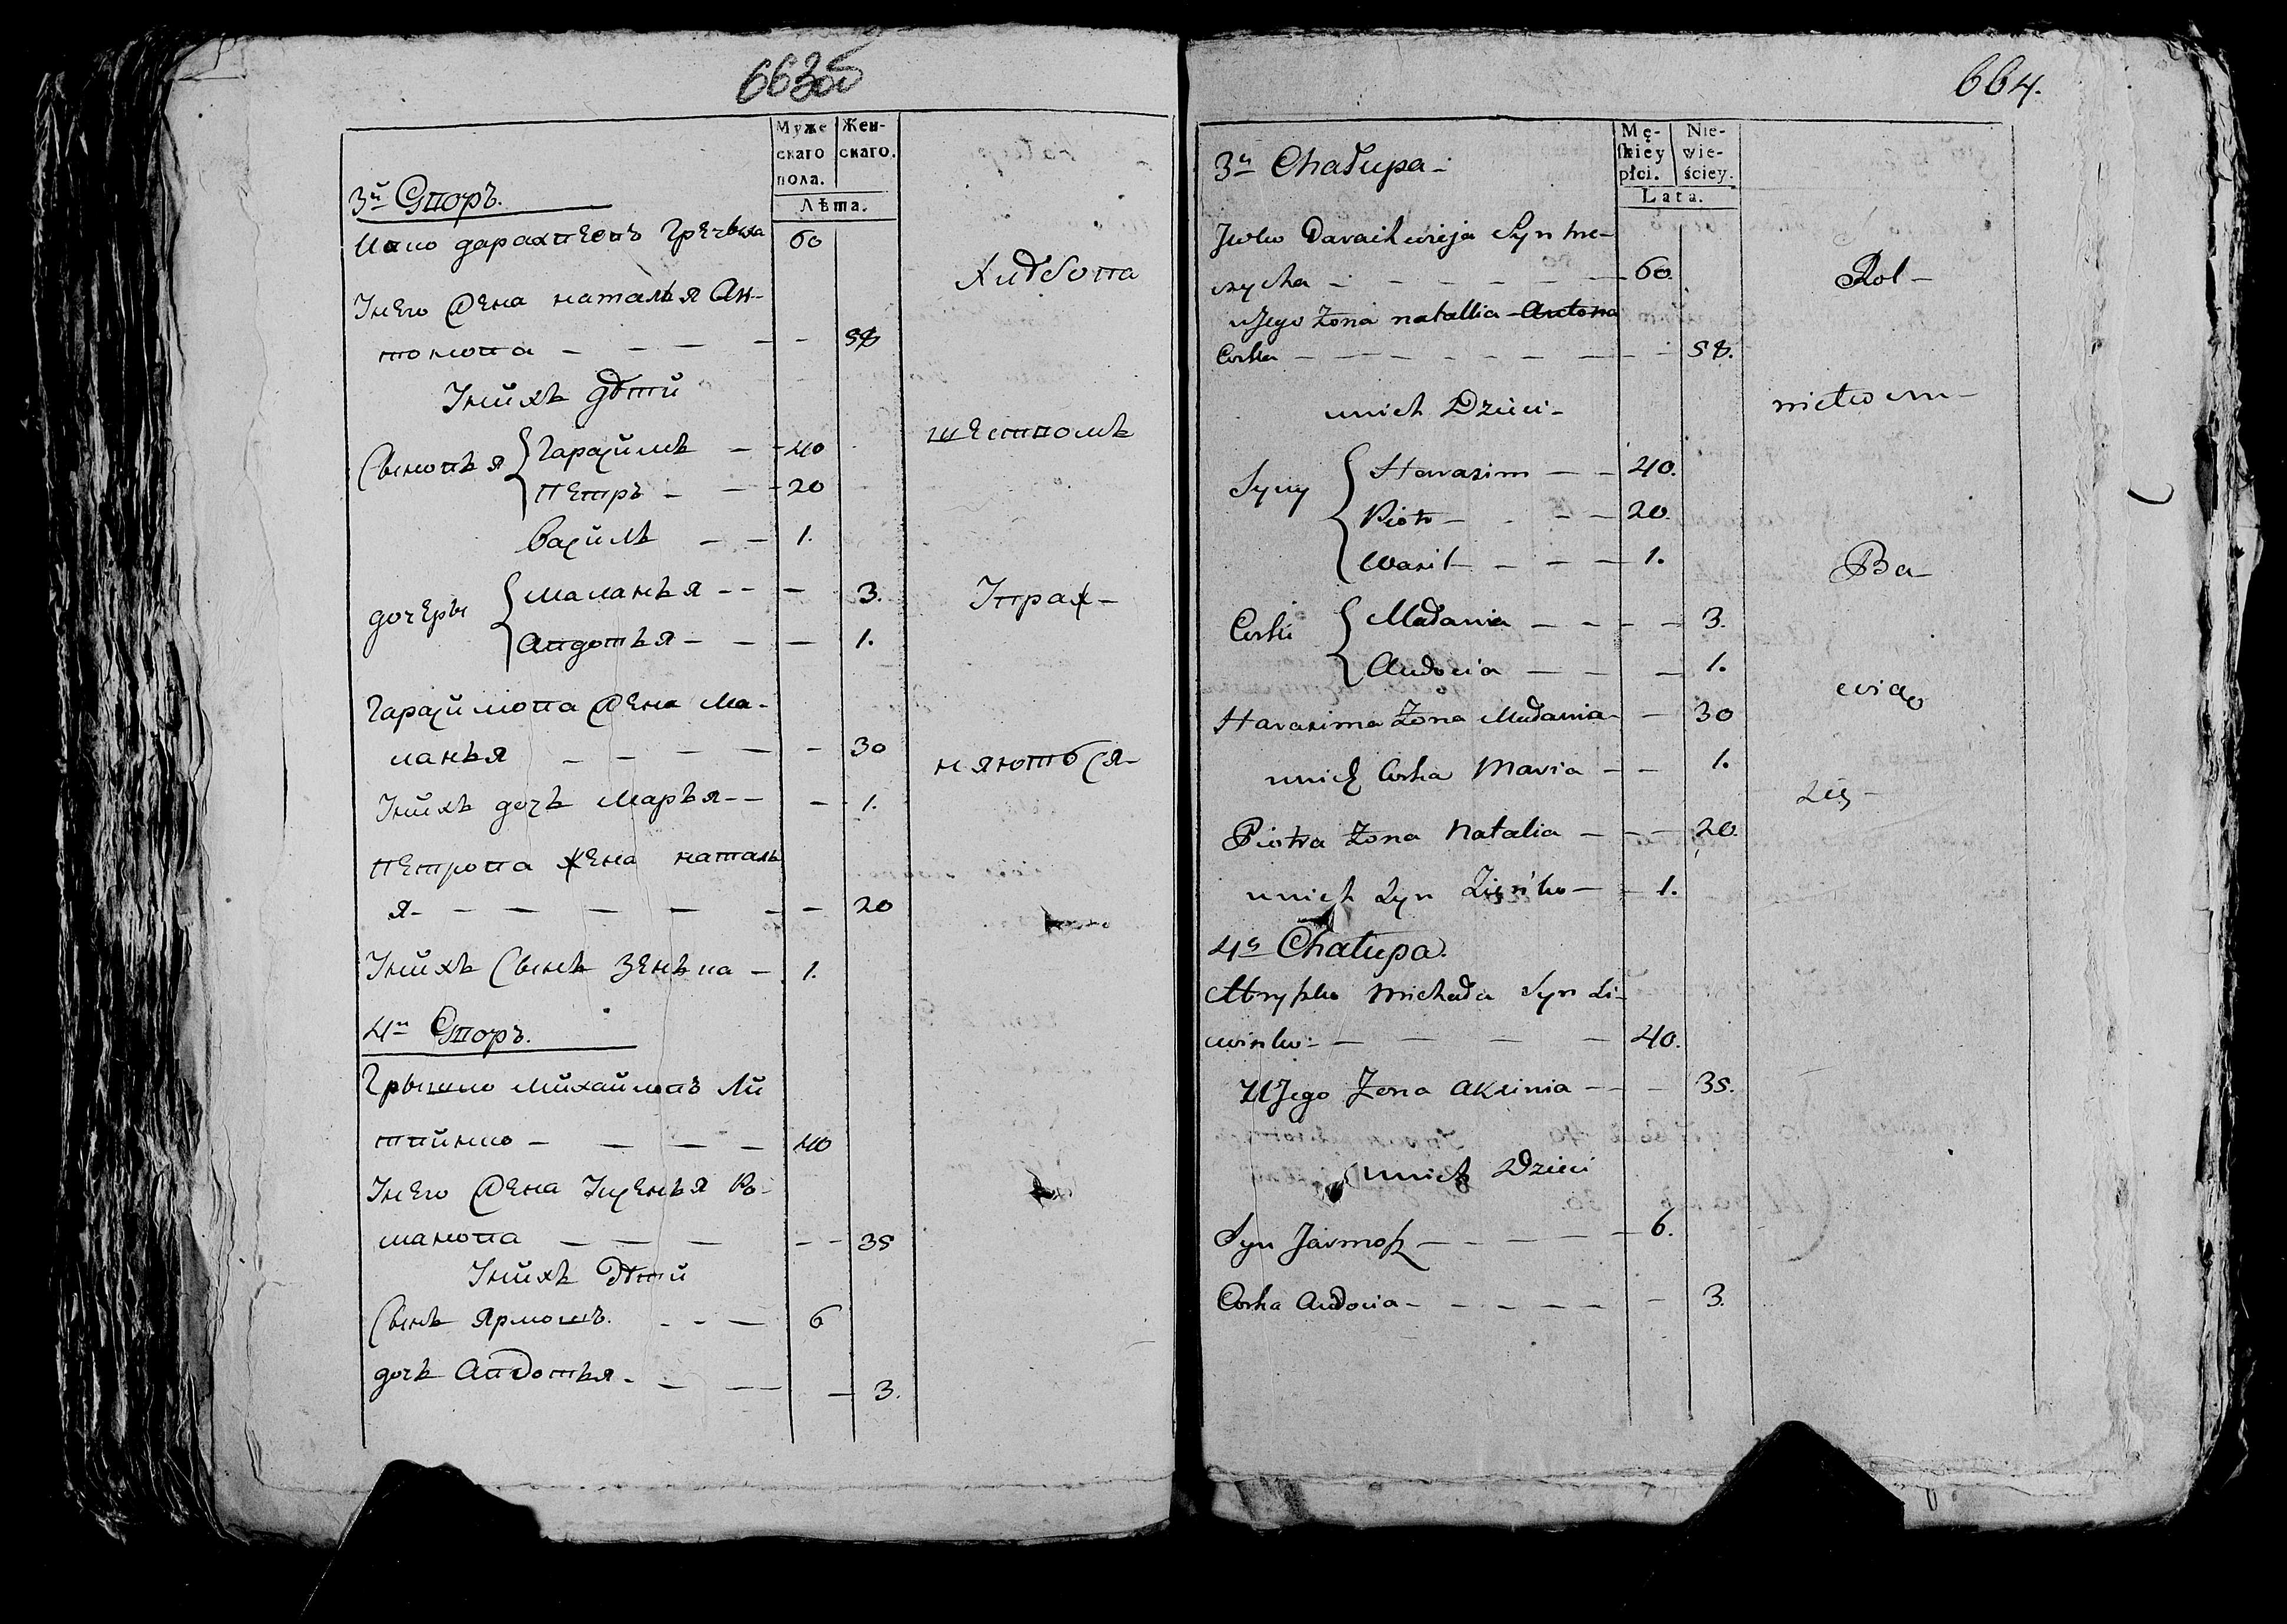 663об
Муже
скаго
пола.
Жен-
скаго.
Лѣта.
3й Дворъ.
60
Інего Жена наталья Ан-
тонова - - - - - 58
Хлѣбопа
Інихъ Дѣти
шествомъ
Сыновья { Гарасимъ - - 40
Петръ - - - 20
Василь - - 1.
дочеры { Маланья - - - 3.
Авдотья - - - 1.
Упраж-
Гарасимова Жена Ма-
ланья - - - - - 30
няютъся-
Інихъ дочь Марья - - - 1.
Петрова Жена наталь
я - - - - - - - 20
Інихъ Сынъ Зенька - 1.
4й Дворъ.
Грышко Михайловъ Ли
твинко - - - - 40
Інего Жена Ксенья Ро-
манова - - - - - 35
Інихъ Дѣти
Сынъ Ярмошъ. - - - 6
дочь Авдотья - - - - 3.
664.
Mę-
skiey
płci.
Nie-
wie-
ściey.
Lata.
3a Chałupa -
czycha - - - - - - 60.
uJego Żona natallia Antona
Corka - - - - - - - - 58.
Rol-
unich Dzieci -
nictwem-
Syny { Harasim - - 40.
Piotr - - - 20.
Wasil - - - 1.
Ba-
Corki { Małania - - - - 3.
Audocia - - - 1.
wią
Harasima Żona Małania - - 30
unich Corka Maria - - 1.
się-
Piotra Żona Natalia - - - 20.
unich Syn Zieńko - - 1.
4a Chałupa.
Hryszko Michała Syn Li-
twinko - - - - - 40.
UJego Żona Aksinia - - - 35.
unich Dzieci
Syn Jarmosz - - - - - 6.
Corka Audocia - - - - - - 3.